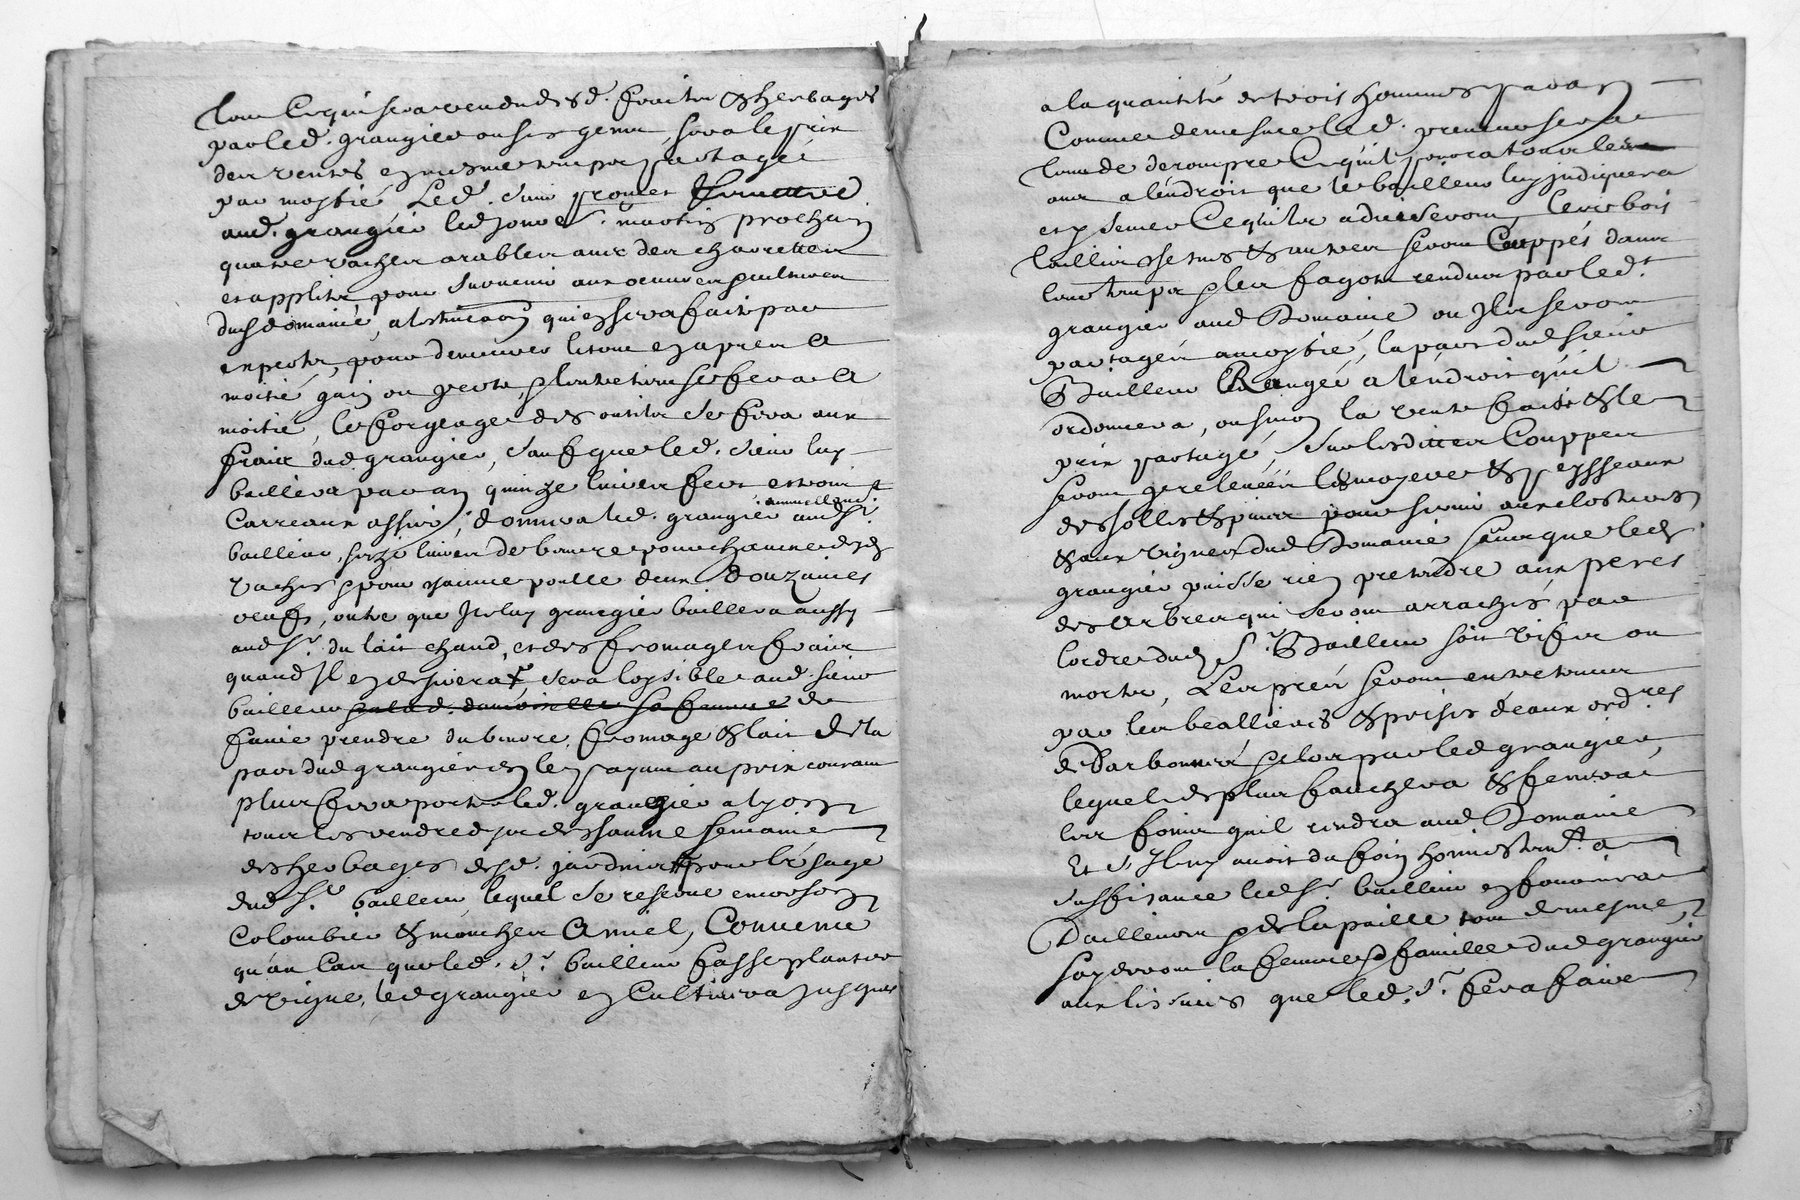 Tout ce qui sera vendu desd. fruits & herbages
par led. grangier ou ses gens, sera le prix
des ventes en mesme temps partagé
par moytié. Led. sieur promet
aud. grangier led jour St. martin prochain
quatre vaches arables avec des charrettes
et applits pour survenir aux oeuvres & cultures
dud domaine, a l'estimation qui en sera faite par
experts, pour demeurer le tout en apres a
moitié gain ou perte, & l'entretien se fera a
moitié, le forgeage des outils se fera aux
fraix dud grangier, sauf que led. sieur luy
baillera par an quinze livres fert et vint
carreaux assier, donnera led. grangier annuellemt. aud Sr.
bailleur, seize livres de beurre pour chacune desd
vaches & pour chacune poulle deux douzaines
oeufs, outre que Iceluy grangier baillera aussy
aud Sr. du lait chaud, et des fromages fraix
quand Il en desirera & sera loysible aud. sieur
bailleur ou lad. damoiselle sa femme de
faire prendre du beurre, fromage & lait de la
part dud grangier en le payant au prix courant
plus fera porter led. grangier a lyon
tous les vendredys de chacune semaine
des herbages desd. jardins pour l'usage
dud Sr. bailleur lequel se reserve encor son
colombier & mouches a miel, Convenu
qu'au cas que led. Sr. bailleur fasse planter
de vigne, led grangier en cultivera jusques
a la quantité de trois hommes par an
Comme de mesme led. preneur sera
tenu de derompre ce qu'il pourra tous les
ans a l'endroit que le bailleur luy indiquera
et y semer ce qu'ils adviseront, les bois
taillis, & autres seront Couppés dans
leur temps & les fagots rendus par led.t
grangier aud Domaine ou Ils seront
partagés a moytié, la part dud sieur
Bailleur Rangée a l'endroit qu'il
ordonnera, ou sinon la vente faite & le
prix partagé, sur lesdittes Couppes
seront prelevéés les & peysseaux
des sollis & pour servir aux clostures
& aux vignes dud Domaine sans que led
grangier puisse rien pretendre aux peres
des arbres qui seront arrachés par
l'ordre dud Sr. Bailleur soit vifs ou
morts, Les prés seront entretenus
par les bealieres & prises d'eaux ord.res
& Darbonnés & clos par led grangier,
lequel de plus fauchera & fenera
les foins qu'il rendra aud Domaine
Et s'Il ny avoit du foin honnestemt. a
suffisance led Sr. bailleur en fournira
D'ailleurs & de la paille tout de mesme,
Sayderont la femme & famille dud grangier
aux lissives que led. Sr. fera faire